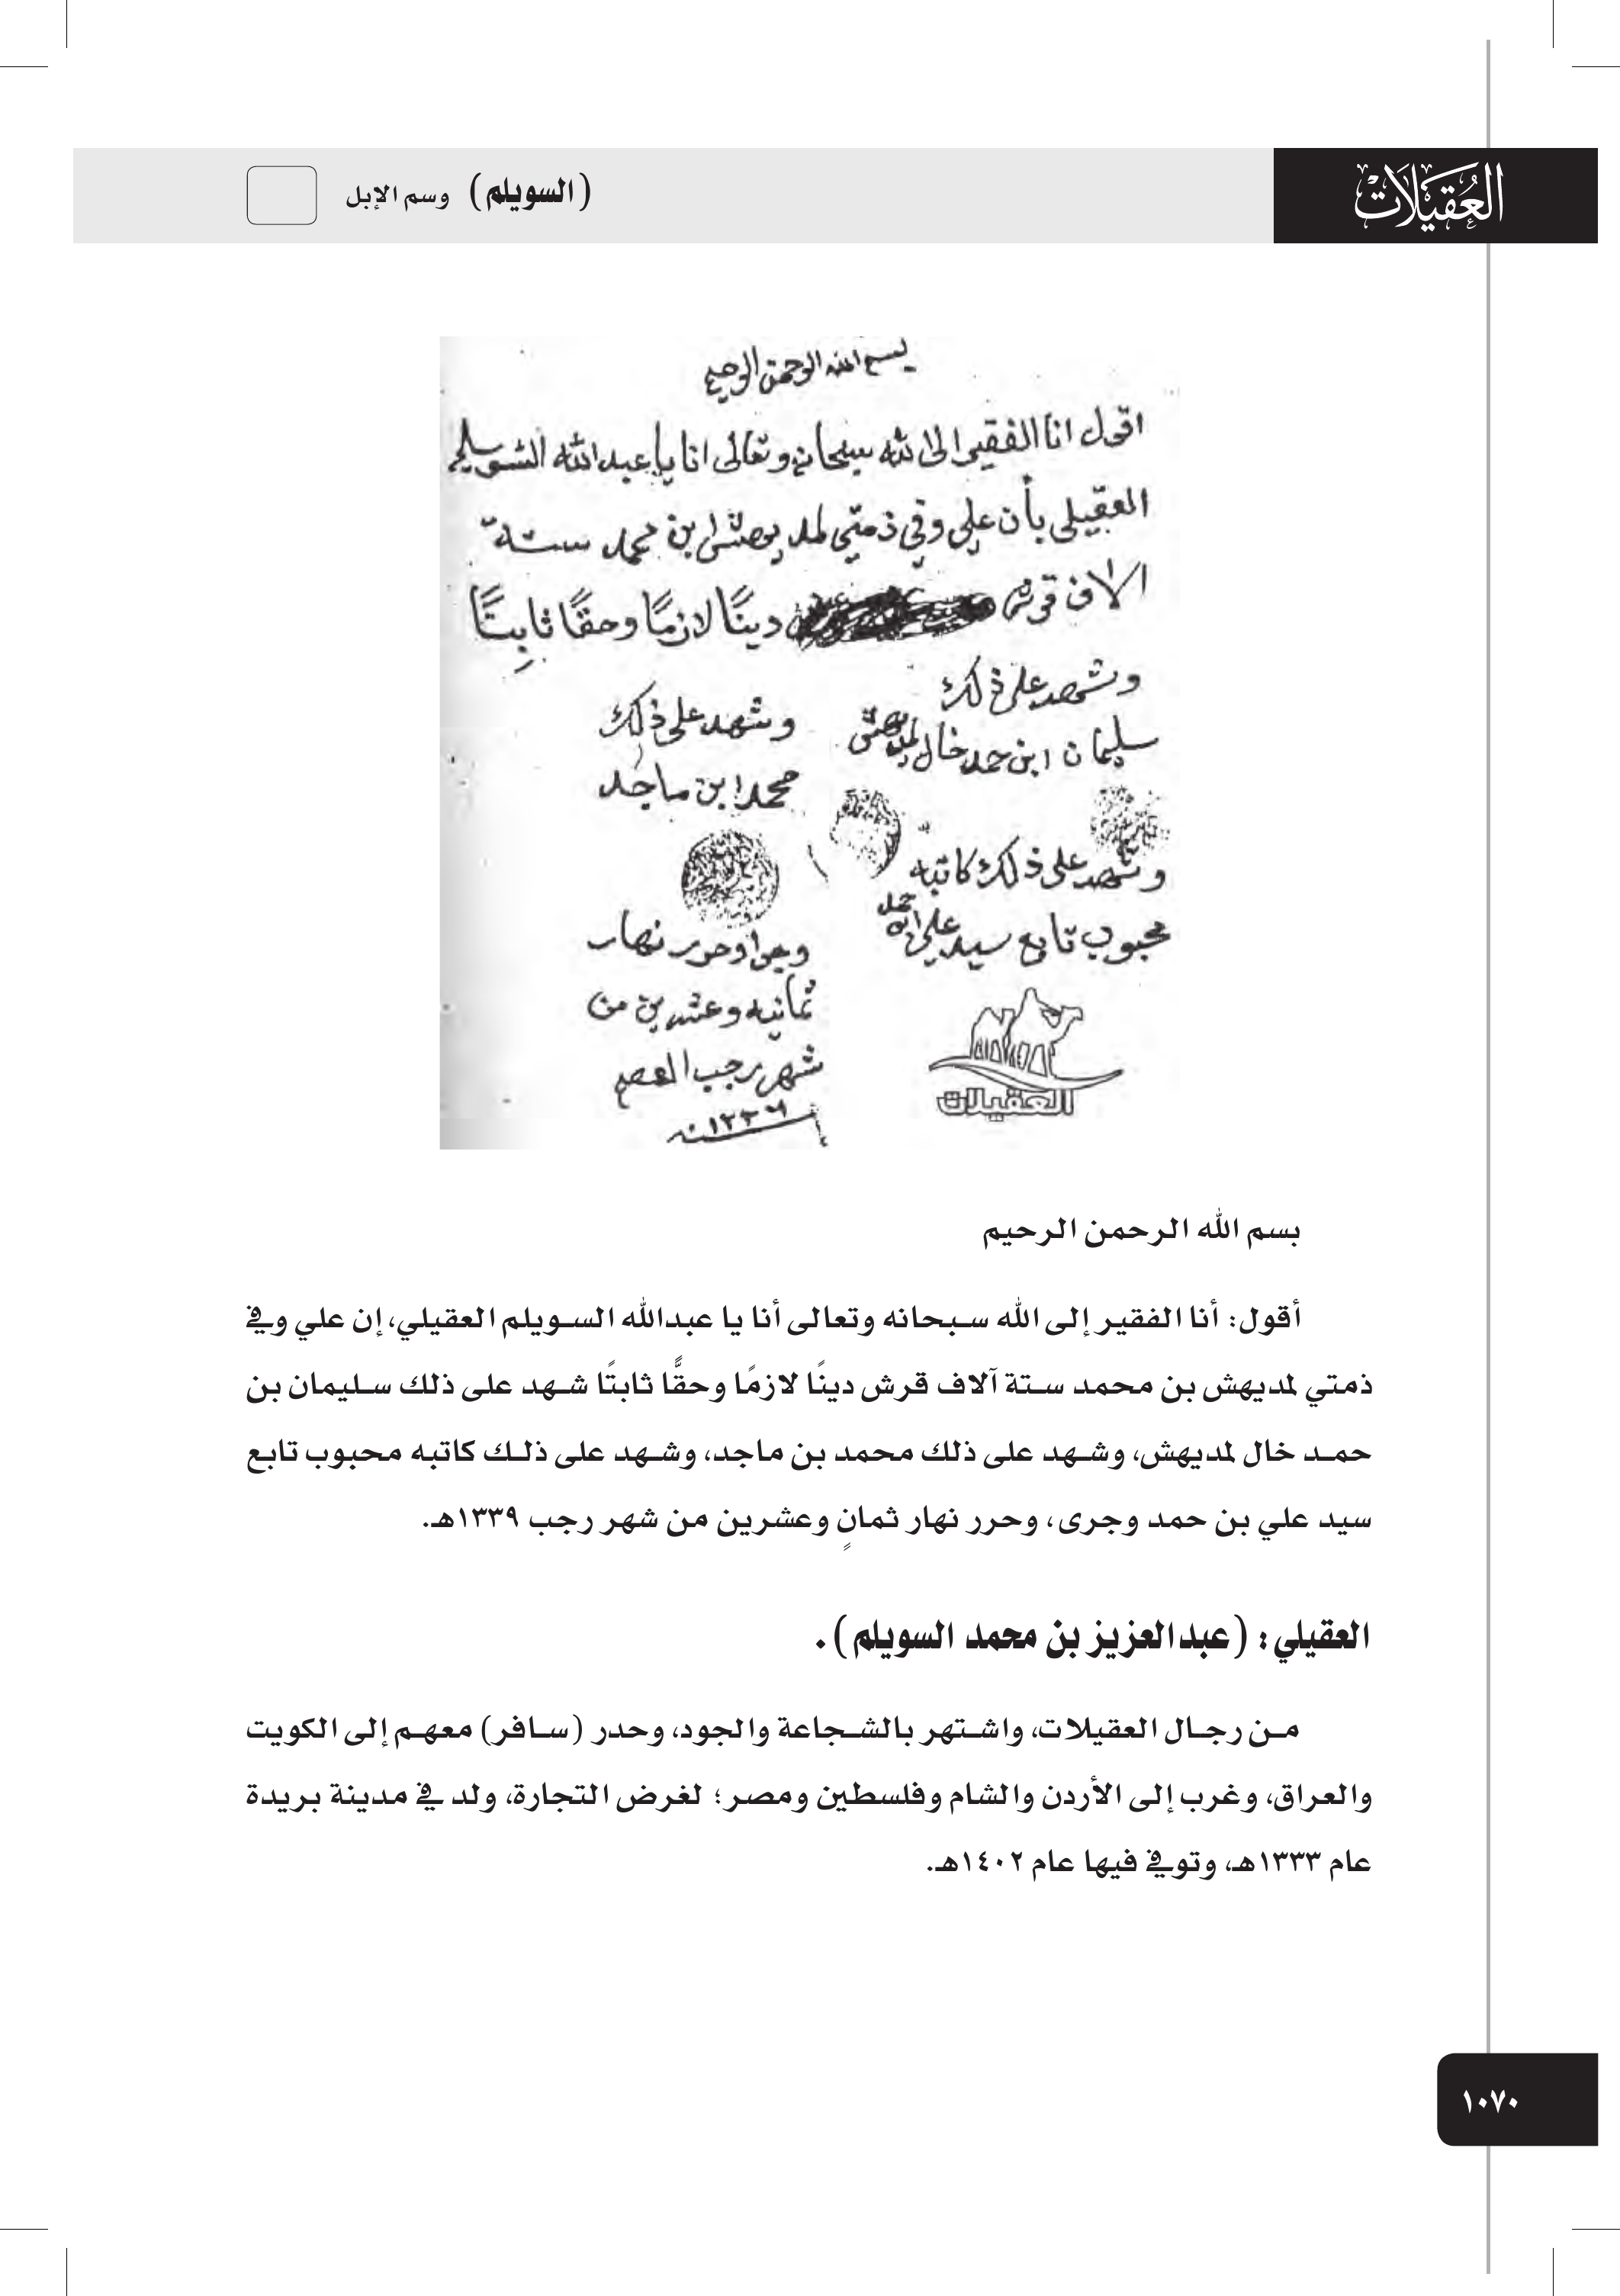 العُقيلات
(السويلم) وسم الإبل
بسم الله الرحمن الرحيم
اقول انا الفقير الى الله سبحانه وتعالى انا يا عبدالله السويلم
العقيلي بأن علي وفي ذمتي لمديهش ابن محمد ستة
الاف قرش دينًا لازمًا وحقًا ثابتًا
وشهد على ذلك
سليمان ابن حمد خال لمديهش
وشهد على ذلك
محمد ابن ماجد
وشهد على ذلك كاتبه
محبوب تابع سيد علي ابن حمد
وجرا وحرر نهار
ثمانيه وعشرين من
شهر رجب
العقيلات
بسم الله الرحمن الرحيم
أقول: أنا الفقير إلى الله سبحانه وتعالى أنا يا عبدالله السويلم العقيلي، إن علي وفي
ذمتي لمديهش بن محمد ستة آلاف قرش دينًا لازمًا وحقًّا ثابتًا شهد على ذلك سليمان بن
حمد خال لمديهش، وشهد على ذلك محمد بن ماجد، وشهد على ذلك كاتبه محبوب تابع
سيد علي بن حمد وجرى، وحرر نهار ثمانٍ وعشرين من شهر رجب ١٣٣٩هـ.
العقيلي: (عبدالعزيز بن محمد السويلم).
من رجال العقيلات، واشتهر بالشجاعة والجود، وحدر (سافر) معهم إلى الكويت
والعراق، وغرب إلى الأردن والشام وفلسطين ومصر؛ لغرض التجارة، ولد في مدينة بريدة
عام ١٣٣٣هـ، وتوفي فيها عام ١٤٠٢هـ.
١٠٧٠